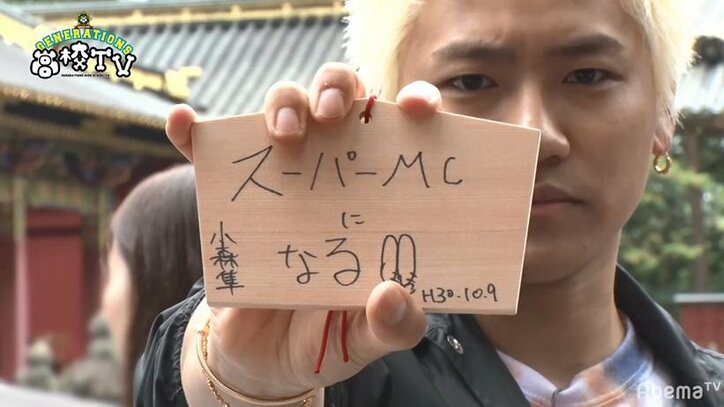 GENERATIONS
高校TV
GENERATIONS HIGH SCHOOL TV
スーパーMC
に
なる
小森隼
H30.10.9
AbemaTV